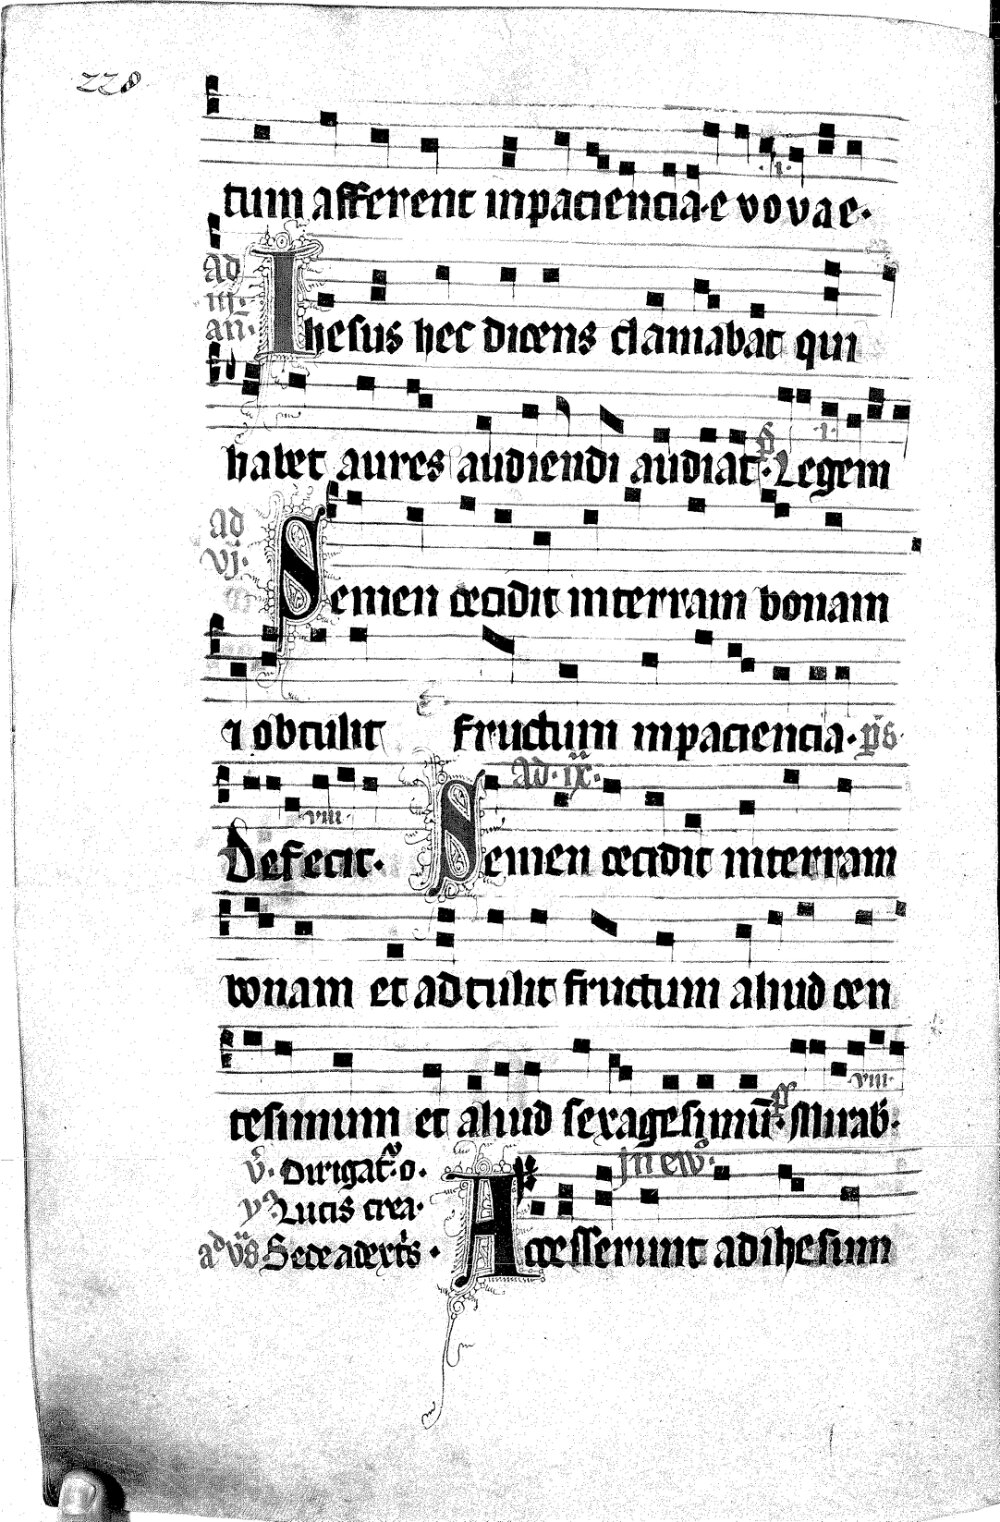 228
tum afferent inpaciencia·e vovae·
ad
iii·
an̄·
Ihesus hec dicens clamabat qui
i·
habet aures audiendi audiat· Legem
ad
vj·
Semen cecidit interram bonam
⁊ obtulit fructum inpaciencia· p̄s·
Ad·ix·
viii·
Defecit· Semen cecidit interram
bonam et adtulit fructum aliud cen
viii·
tesimum et aliud sexagesimū· Mirab·
v̄· Dirigat̄·o· jn ew̄·
y Lucis crea·
ad vs̄ Sede adextis· Accesserunt adihesum